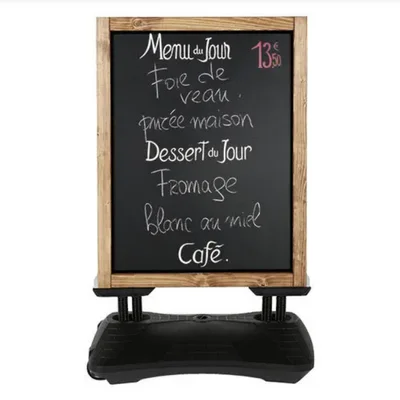 Menu du Jour 13€50
Foie de
veau.
purée maison
Dessert du Jour
Fromage
blanc au miel
Café.